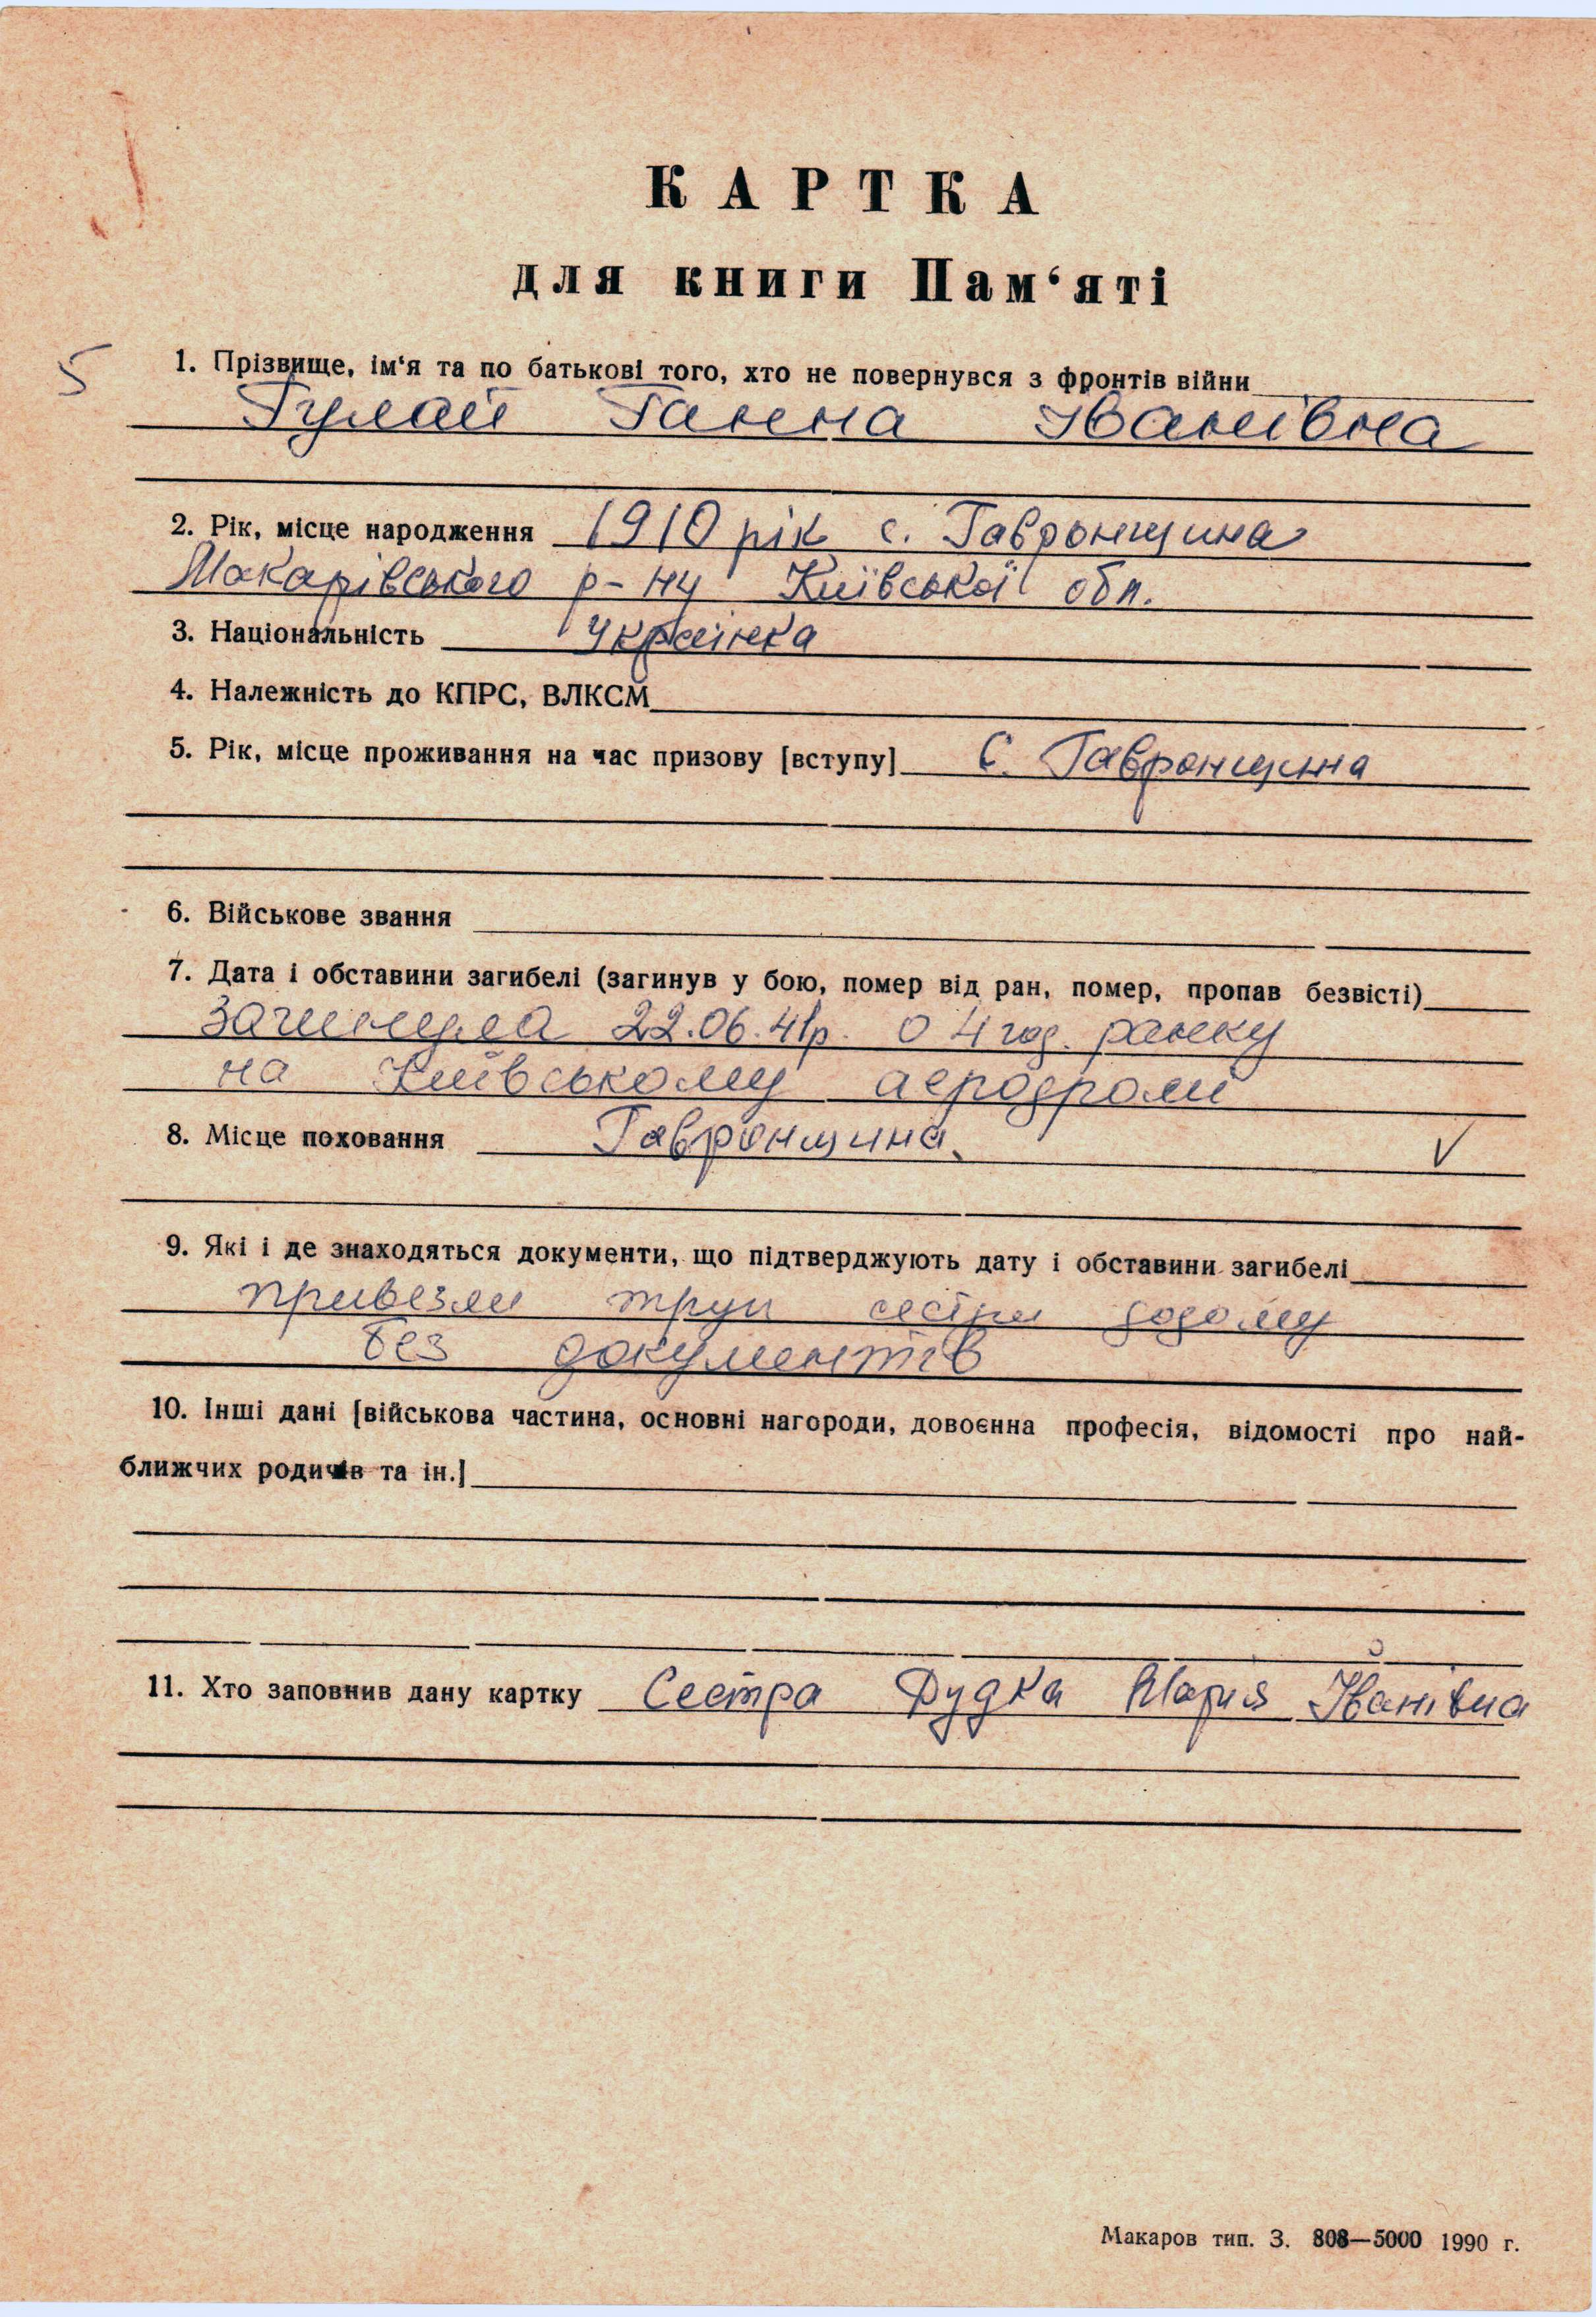 КАРТКА
для книги Пам‘яті
5
1. Прізвище, ім‘я та по батькові того, хто не повернувся з фронтів війни
Гулай Ганна Іванівна
2. Рік, місце народження 1910 рік с. Гавронщина
Макарівського р-ну Київської обл.
3. Національність Українка
4. Належність до КПРС, ВЛКСМ
5. Рік, місце проживання на час призову [вступу] С. Гавронщина
6. Військове звання
7. Дата і обставини загибелі (загинув у бою, помер від ран, помер, пропав безвісті)
загинула 22.06.41р. о 4 год. ранку
на Київському аеродромі
8. Місце поховання Гавронщина. V
9. Які і де знаходяться документи, що підтверджують дату і обставини загибелі
привезли труп сестри додому
без документів
10. Інші дані [військова частина, основні нагороди, довоєнна професія, відомості про най-
ближчих родичів та ін.]
11. Хто заповнив дану картку Сестра Дудка Марія Іванівна
Макаров тип. З. 808—5000 1990 г.